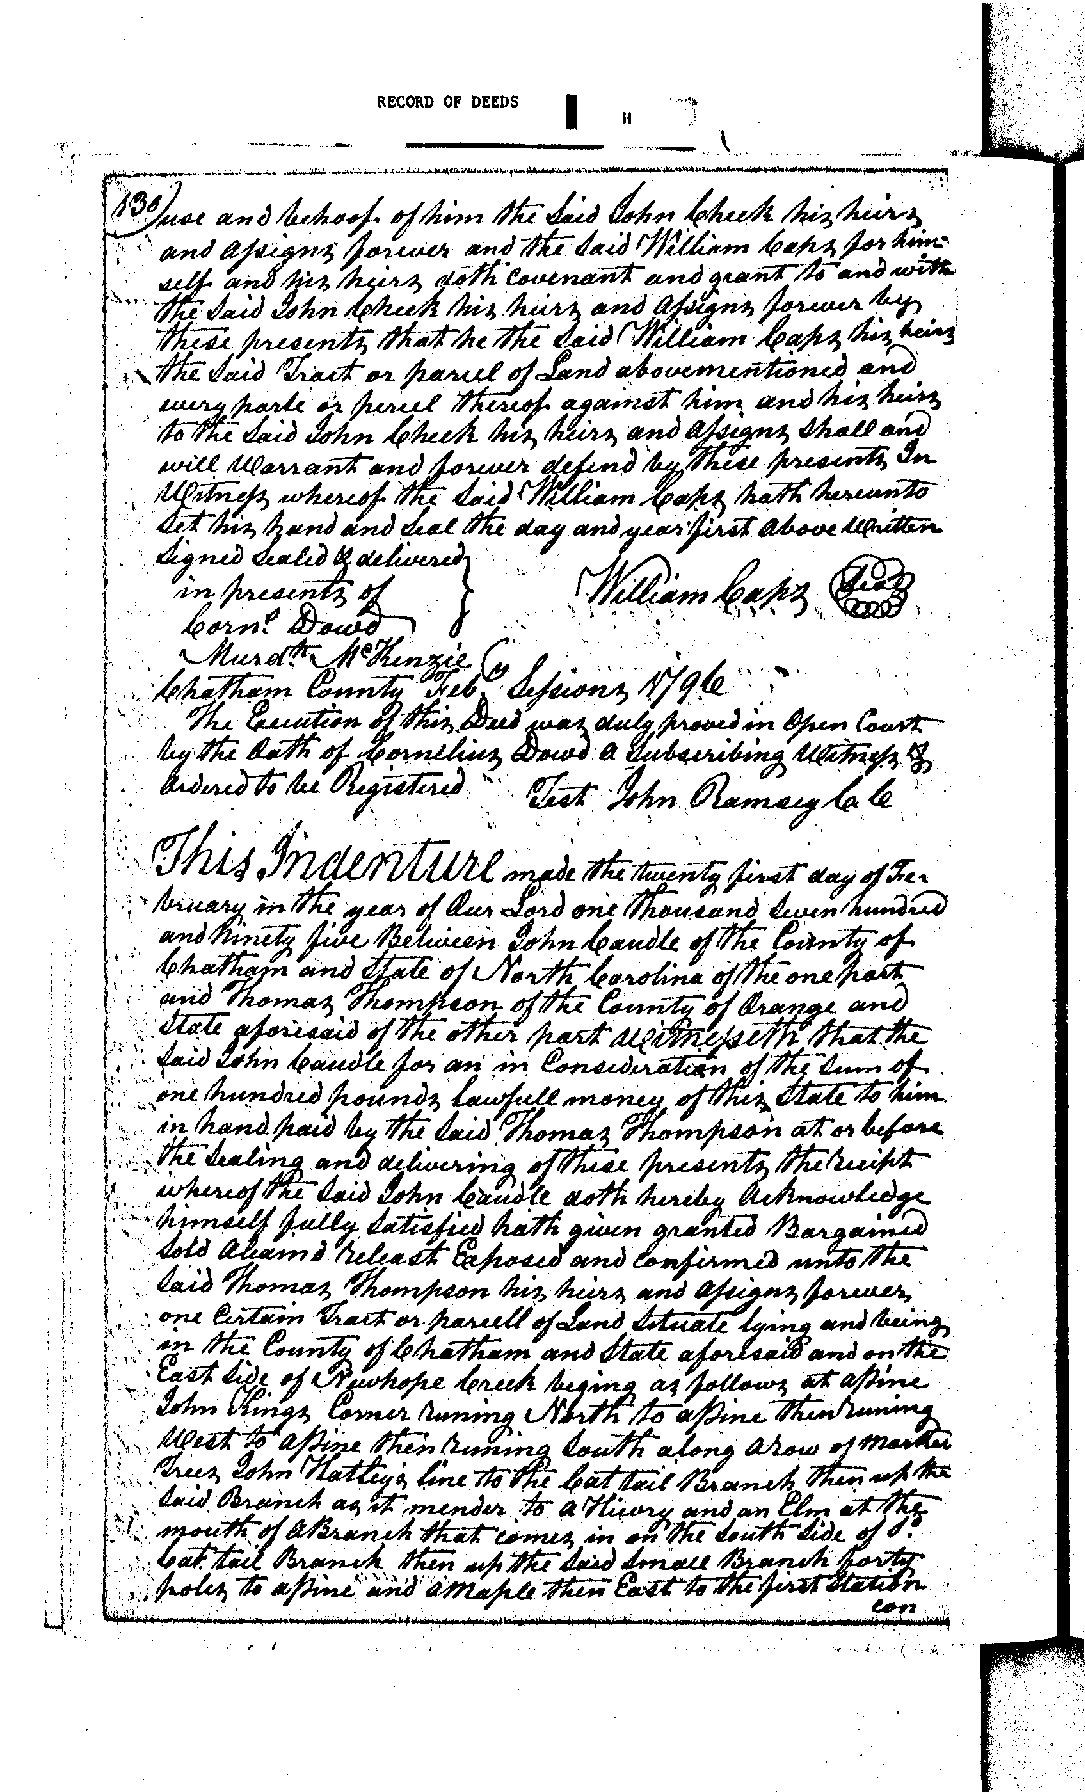 RECORD OF DEEDS H
130
use and behoof of him the Said John Cheek his heirs
and assigns forever and the Said William Caps for him-
self and his heirs doth covenant and grant to and with
the Said John Cheek his heirs and assigns forever by
these presents that he the Said William Caps his heirs
the Said Tract or parcel of Land abovementioned and
every parte or percel thereof against him and his heirs
to the Said John Cheek his heirs and assigns Shall and
will Warrant and forever defend by these presents In
Witness whereof the Said William Caps hath hereunto
Set his hand and Seal the day and year first above Written
Signed Sealed & delivered
in presents of
William Caps Seal
Corns. Dowd
Murdth. McKenzie
Chatham County Feby. Sessions 1796
The Execution of this Deed was duly proved in Open Court
by the Oath of Cornelius Dowd a Subscribing Witness &
Ordered to be Registered Test John Ramsey C C
This Indenture made the twenty first day of Fe-
bruary in the year of Our Lord one thousand Seven hundred
and Ninety five Between John Caudle of the County of
Chatham and State of North Carolina of the one part
and Thomas Thompson of the County of Orange and
State aforesaid of the other part Witnesseth that the
Said John Caudle for an in Consideration of the Sum of
one hundred pounds lawfull money of this State to him
in hand paid by the Said Thomas Thompson at or before
the Sealing and delivering of these presents the receipt
whereof the Said John Caudle doth hereby Acknowledge
himself fully Satisfied hath given granted Bargained
Sold Aleamd releast Exposed and confirmed unto the
Said Thomas Thompson his heirs and assigns forever
one Certain Tract or parcell of Land Situate lying and being
in the County of Chatham and State aforesaid and on the
East Side of Newhope Creek beging as follows at a Pine
John Kings Corner runing North to a Pine then runing
West to a Pine then runing South along a row of Marked
Trees John Hatley's line to the Cat tail Branch then up the
Said Branch as it mender to a Hicory and an Elm at the
mouth of a Branch that comes in on the South Side of Sd.
Cat tail Branch then up the Said Small Branch forty
poles to a Pine and a Maple then East to the first Station
con